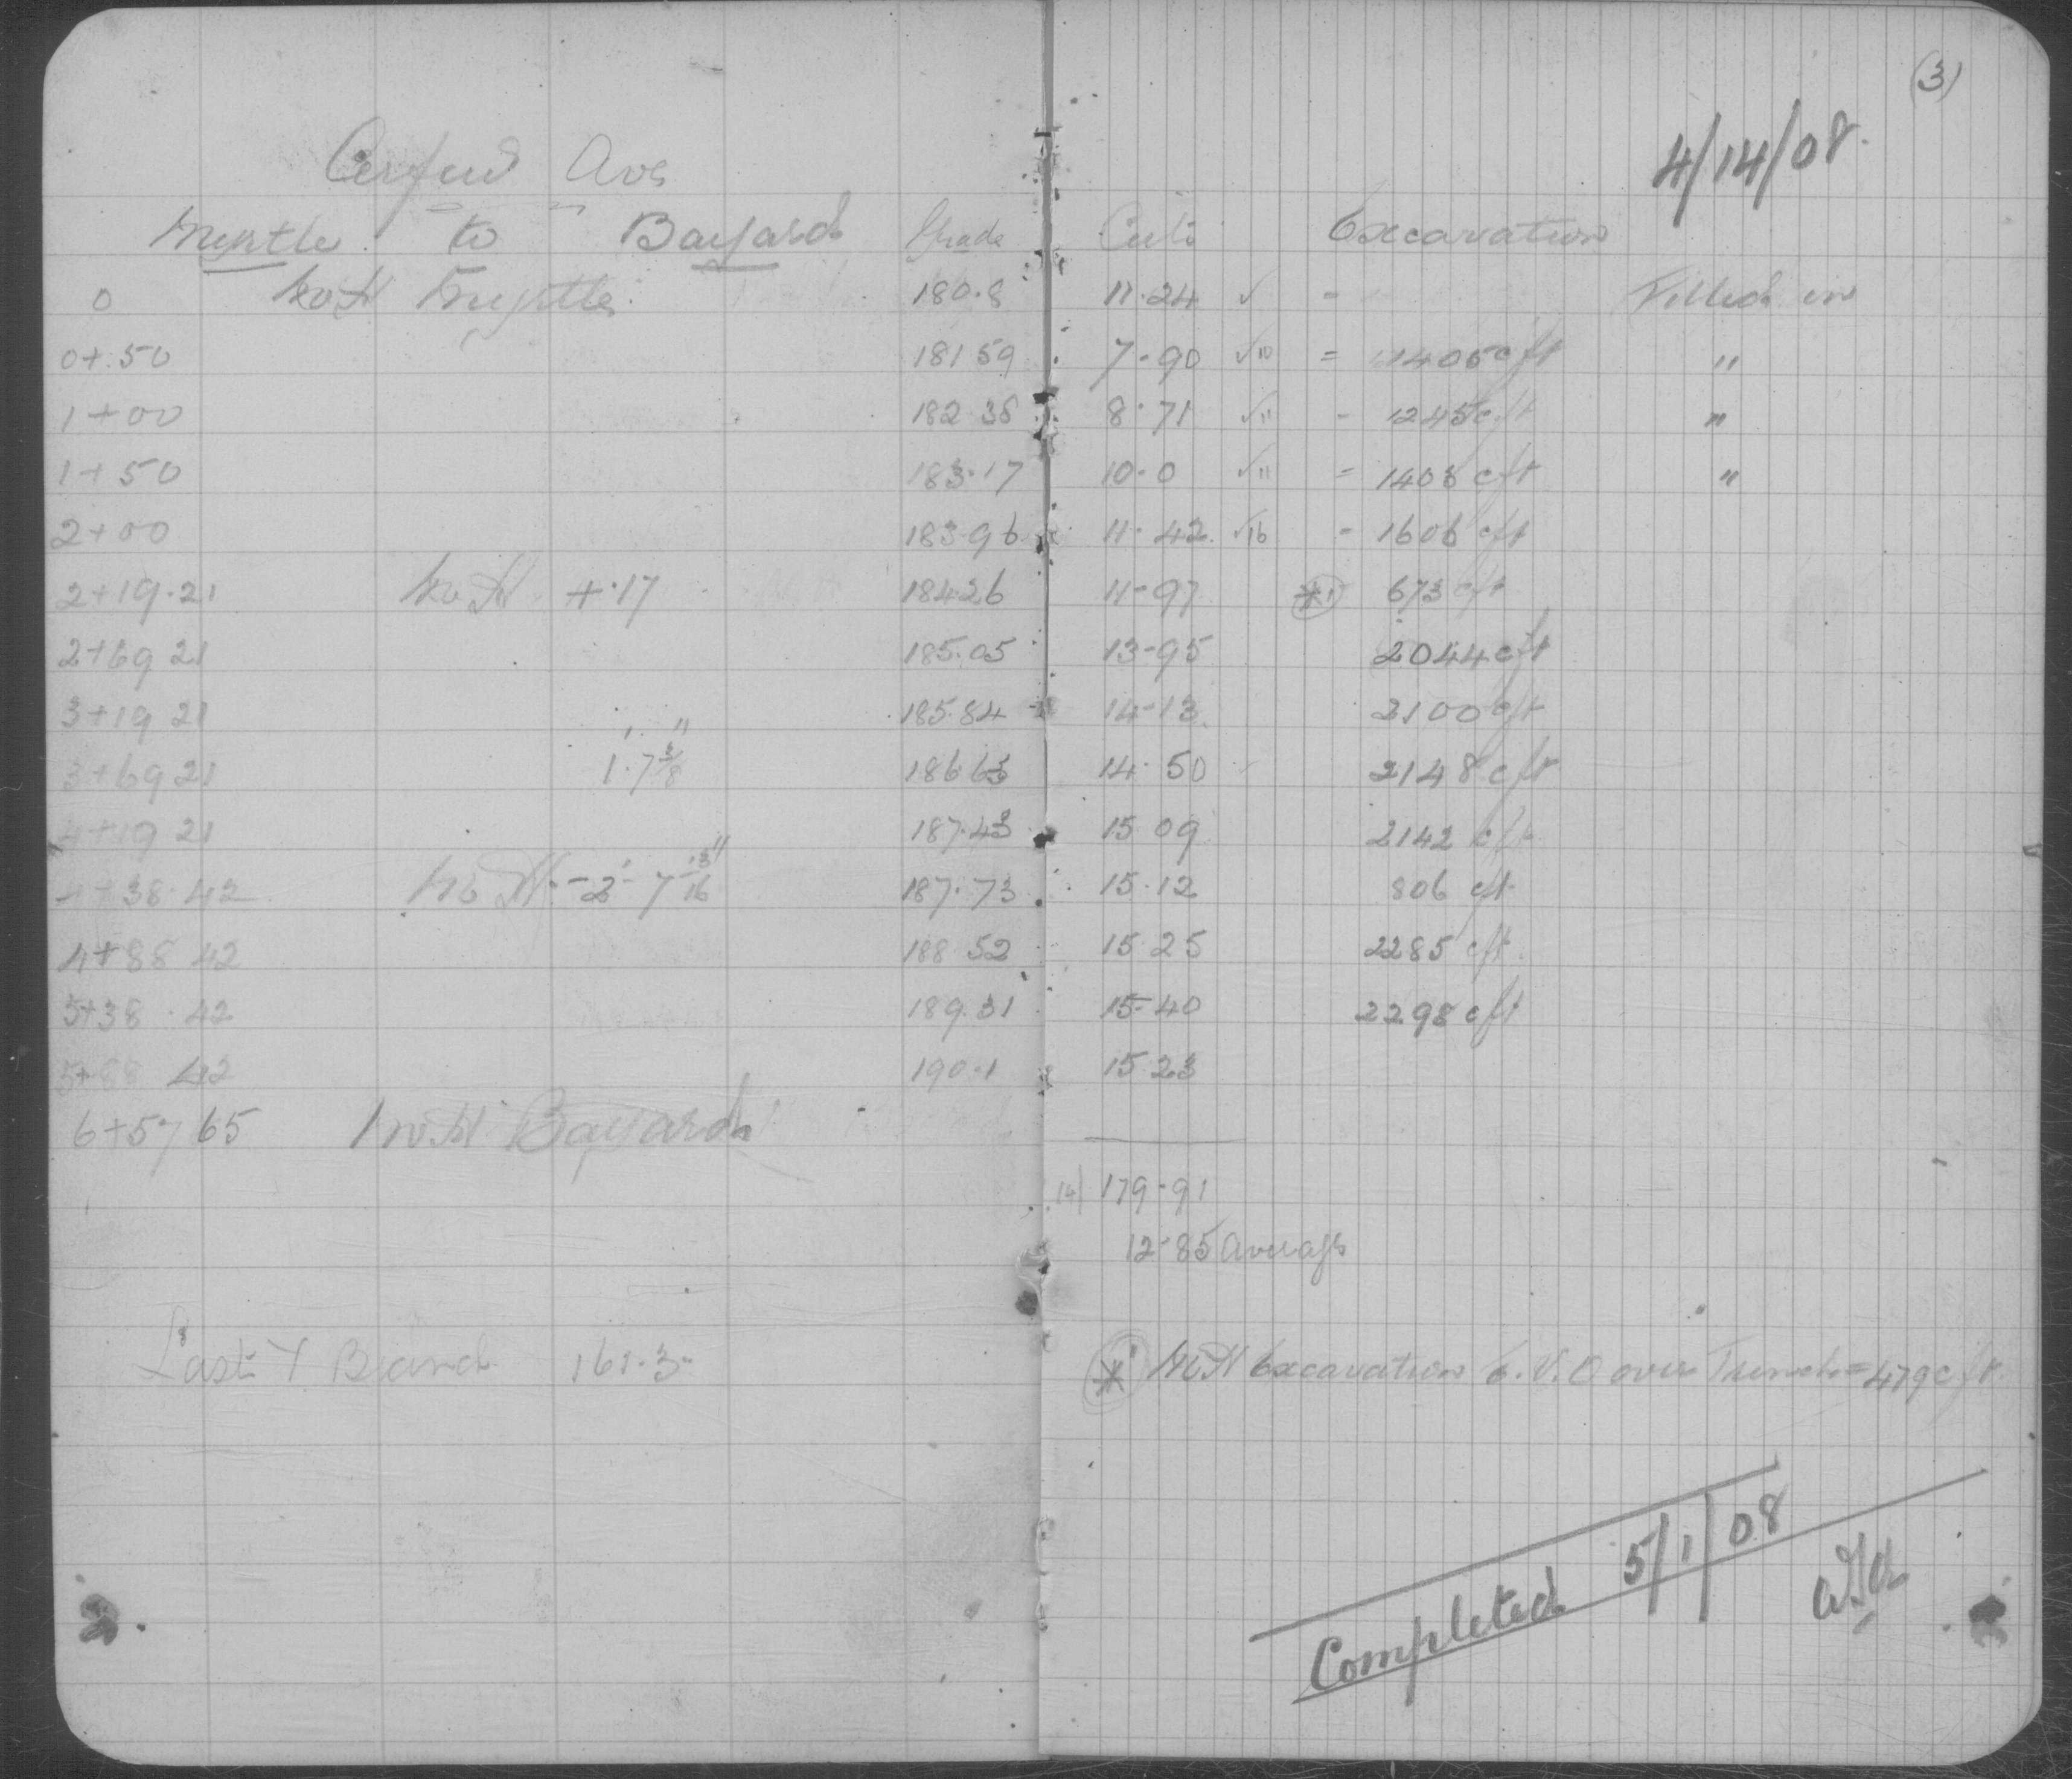 (3)
4/14/08.
Ave
Myrtle to Bayard Grade Cuts Excavation
0 Myrtle 180.8 11.24 √ = Filled in
0+.50 181 59 7.90 √ " = 1405 cft "
1+00 182.38 8.71 √ " - 1245 cft "
1+50 183.17 10.0 √ " = 1403 cft "
2+00 183.96 11.42 √ 16 = 1606 cft
2+19.21 +.17 184.26 11.97 * 673 cft
2+69 21 185.05 13-95 2044 cft
3+19 21 185.84 14-13 2100 cft
3+69 21 1'.7 3/8" 186 63 14.50 2148 cft
4+19 21 187.43 15 09 2142 cft
4+38.42 -2'-7 13/16" 187.73 15.12 806 cft
4+88 42 188.52 15.25 2285 cft
5+38.42 189.31 15-40 2298 cft
5+88 42 190.1 15.23
6+57 65 Bayard
14) 179-91
12-85 average
Last Y Branch 161.3
* Excavation over Trench = 479 cft.
Completed 5/1/08